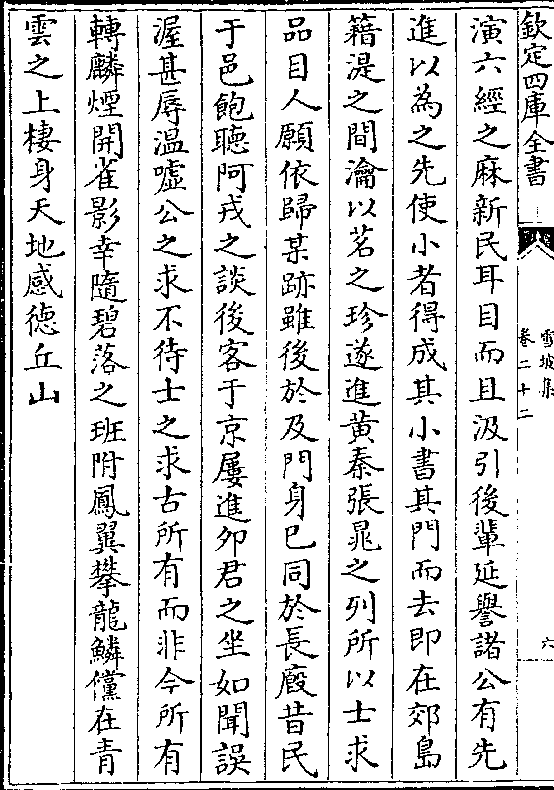 欽定四庫全書
雪坡集
卷二十二
六
演六經之麻新民耳目而且汲引後輩延譽諸公有先
進以為之先使小者得成其小書其門而去即在郊島
籍湜之間瀹以茗之珍遂進黄秦張晁之列所以士求
品目人願依歸某跡雖後於及門身已同於長廄昔民
于邑飽聽阿戎之談後客于京屢進夘君之坐如聞誤
渥甚辱温噓公之求不待士之求古所有而非今所有
轉麟煙開雀影幸隨碧落之班附鳳翼攀龍鱗儻在青
雲之上棲身天地感德丘山